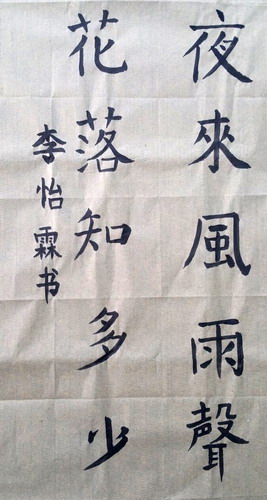 夜來風雨聲
花落知多少
李怡霖书